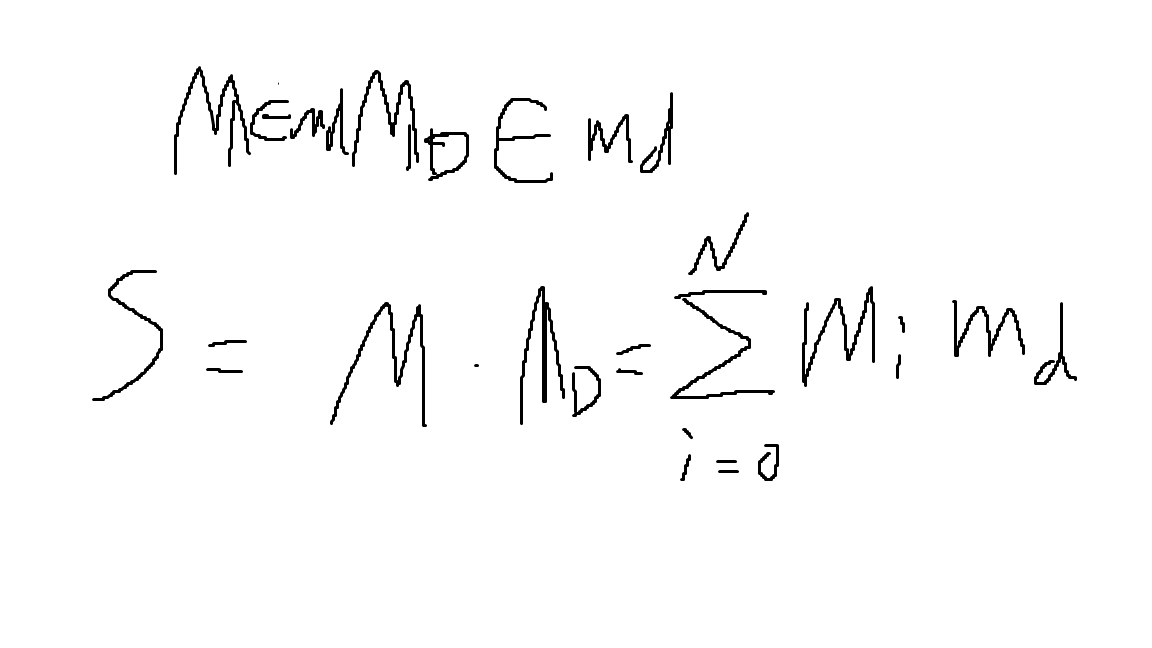 M∈m M_D ∈ m_d
S = M · M_D = \sum_{i=0}^{N} M_i m_d